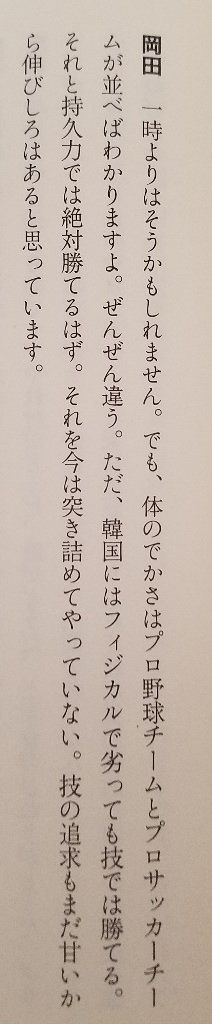 岡田　一時よりはそうかもしれません。でも、体のでかさはプロ野球チームとプロサッカーチー
ムが並べばわかりますよ。ぜんぜん違う。ただ、韓国にはフィジカルで劣っても技では勝てる。
それと持久力では絶対勝てるはず。それを今は突き詰めてやっていない。技の追求もまだ甘いか
ら伸びしろはあると思っています。